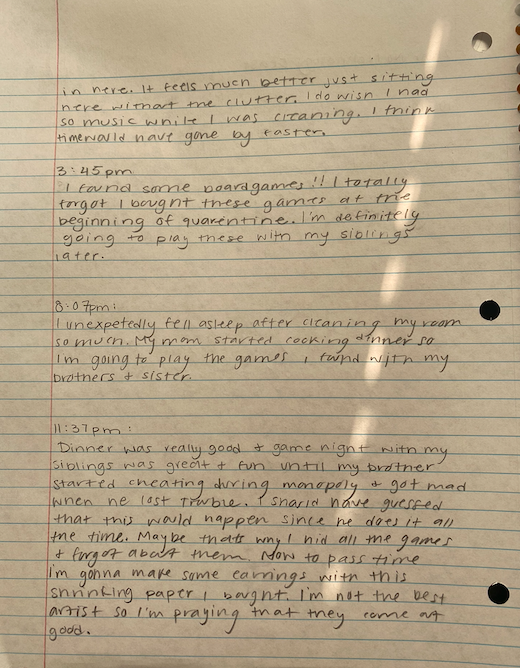 in here. It feels much better just sitting
here without the clutter. I do wish I had
so music while I was cleaning. I think
time would have gone by faster.
3:45pm
I found some boardgames!! I totally
forgot I bought these games at the
beginning of quarentine. I'm definitely
going to play these with my siblings
later.
8:07pm:
I unexpetedly fell asleep after cleaning my room
so much. My mom started cooking dinner so
I'm going to play the games I found with my
brothers & sister.
11:37pm:
Dinner was really good & game night with my
siblings was great & fun until my brother
started cheating during monopoly & got mad
when he lost Trouble. I should have guessed
that this would happen since he does it all
the time. Maybe thats why I hid all the games
& forgot about them. Now to pass time
I'm gonna make some earrings with this
shrinking paper I bought. I'm not the best
artist so I'm praying that they come out
good.